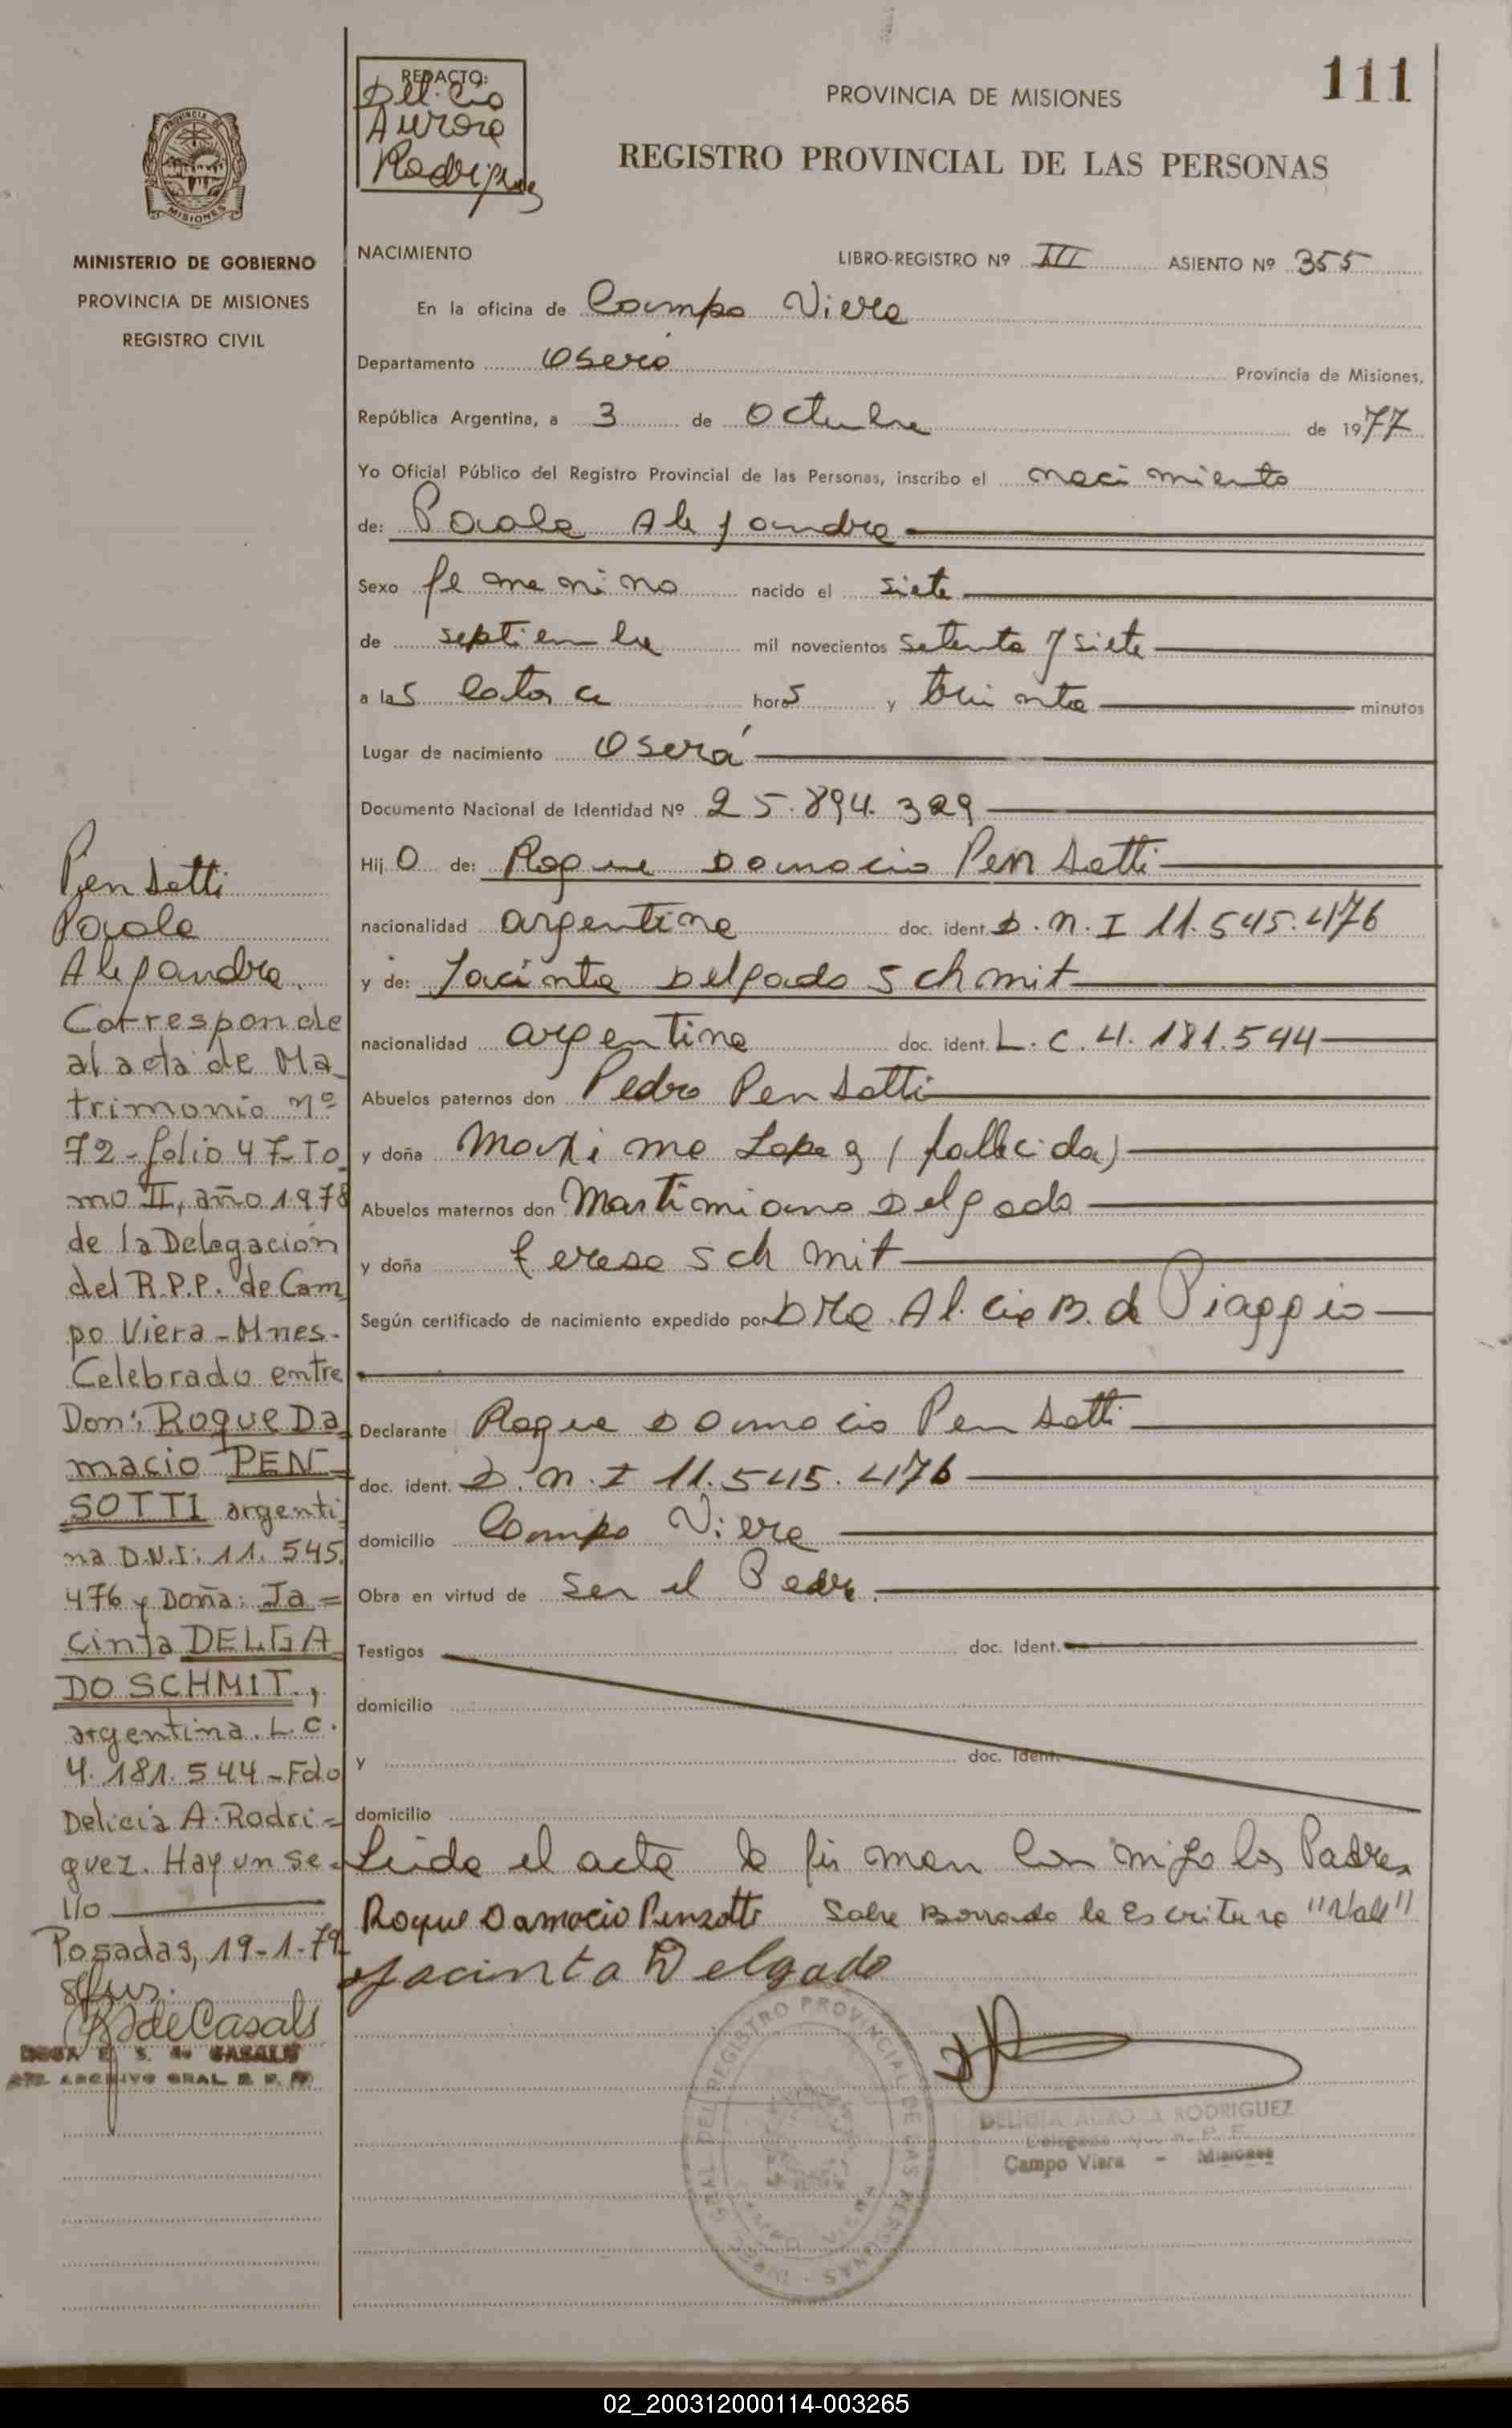 111
REDACTO:
Delicia
Aurora
Rodriguez
PROVINCIA DE MISIONES
REGISTRO PROVINCIAL DE LAS PERSONAS
PROVINCIA DE
MISIONES
MINISTERIO DE GOBIERNO
PROVINCIA DE MISIONES
REGISTRO CIVIL
NACIMIENTO LIBRO-REGISTRO Nº III ASIENTO Nº 355
En la oficina de Campo Viera
Departamento Oberá Provincia de Misiones,
República Argentina, a 3 de Octubre de 1977
Yo Oficial Público del Registro Provincial de las Personas, inscribo el nacimiento
de: Paola Alejandra
Sexo femenino nacido el siete
de septiembre mil novecientos setenta y siete
a las catorce horas y treinta minutos
Lugar de nacimiento Oberá
Documento Nacional de Identidad Nº 25.894.329
Hijo de: Roque Damacio Pensotti
nacionalidad argentina doc. ident. D.N.I 11.545.476
y de: Jacinta Delgado Schmit
nacionalidad argentina doc. ident. L.C. 4.181.544
Abuelos paternos don Pedro Pensotti
y doña Maxima Lopez (fallecida)
Abuelos maternos don Martimiano Delgado
y doña teresa Schmit
Según certificado de nacimiento expedido por Dra. Alicia B. de Piaggio
Declarante Roque Damacio Pensotti
doc. ident. D.N.I 11.545.476
domicilio Campo Viera
Obra en virtud de Ser el Padre.
Testigos doc. Ident.
domicilio
y doc. Ident.
domicilio
Leida el acta la firman conmigo los Padres
Roque Damacio Penzotti Sobre Borrado la escritura "Vale"
Jacinta Delgado
DEL REGISTRO PROVINCIAL DE LAS PERSONAS
CAMPO VIERA
DELICIA AURORA RODRIGUEZ
Campo Viera - Misiones
Pensotti
Paola
Alejandra.
Corresponde
al acta de Ma
trimonio Nº
72-folio 47-To
mo II, año 1978
de la Delegación
del R.P.P. de Cam
po Viera-Mnes-
Celebrado entre
Don: Roque Da
macio PEN=
SOTTI argenti
na D.N.I: 11.545.
476 y Doña: Ja=
cinta DELGA
DO SCHMIT.,
argentina. L.C.
4.181.544-Fdo
Delicia A. Rodri=
guez. Hay un se-
llo
Posadas, 19-1-79
de Casals
E. S. de CASALS
ARCHIVO GRAL R. P. P.
02_200312000114-003265